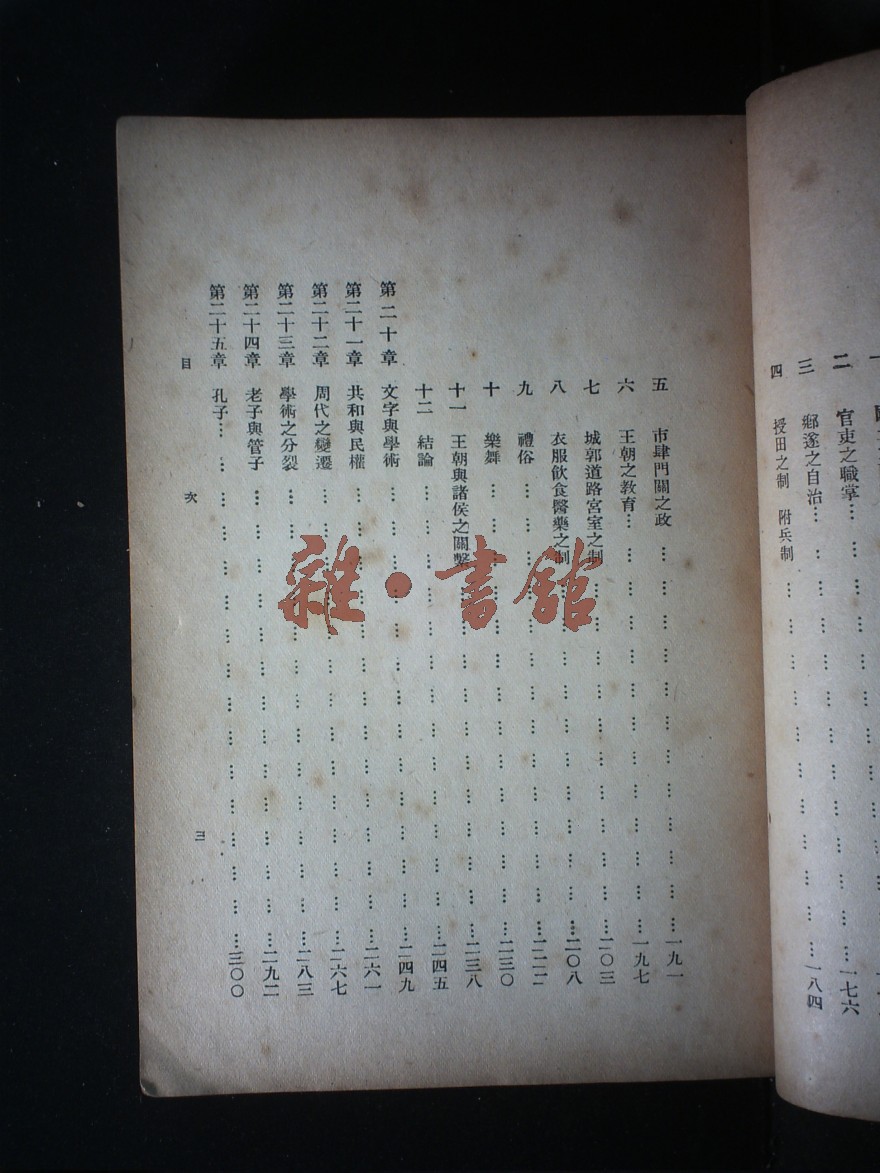 二　官吏之職掌…
三　鄉遂之自治……一七六
四　授田之制　附兵制……一八四
五　市肆門關之政……一九一
六　王朝之教育……一九七
七　城郭道路宮室之制……二〇三
八　衣服飲食醫藥之制……二〇八
九　禮俗……二二二
十　樂舞……二三〇
十一　王朝與諸侯之關繫……二三八
十二　結論……二四五
第二十章　文字與學術……二四九
第二十一章　共和與民權……二六一
第二十二章　周代之變遷……二六七
第二十三章　學術之分裂……二八三
第二十四章　老子與管子……二九二
第二十五章　孔子……三〇〇
目　次　三
雜·書館